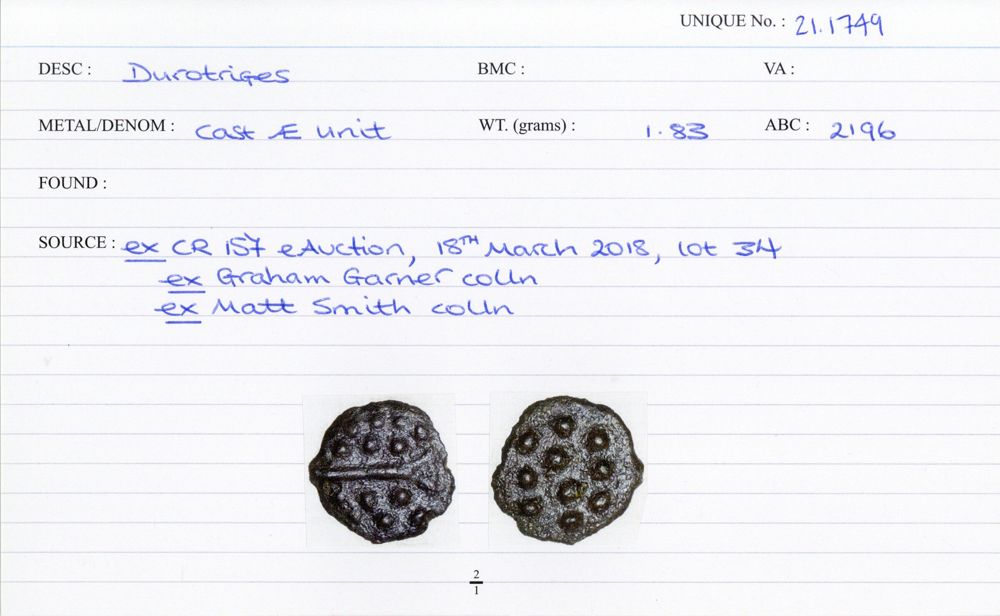 UNIQUE No. : 21.1749
DESC : Durotriges BMC : VA :
METAL/DENOM : Cast Æ unit WT. (grams) : 1.83 ABC : 2196
FOUND :
SOURCE : ex CR 157 eAuction, 18TH March 2018, lot 34
ex Graham Garner colln
ex Matt Smith colln
2
1